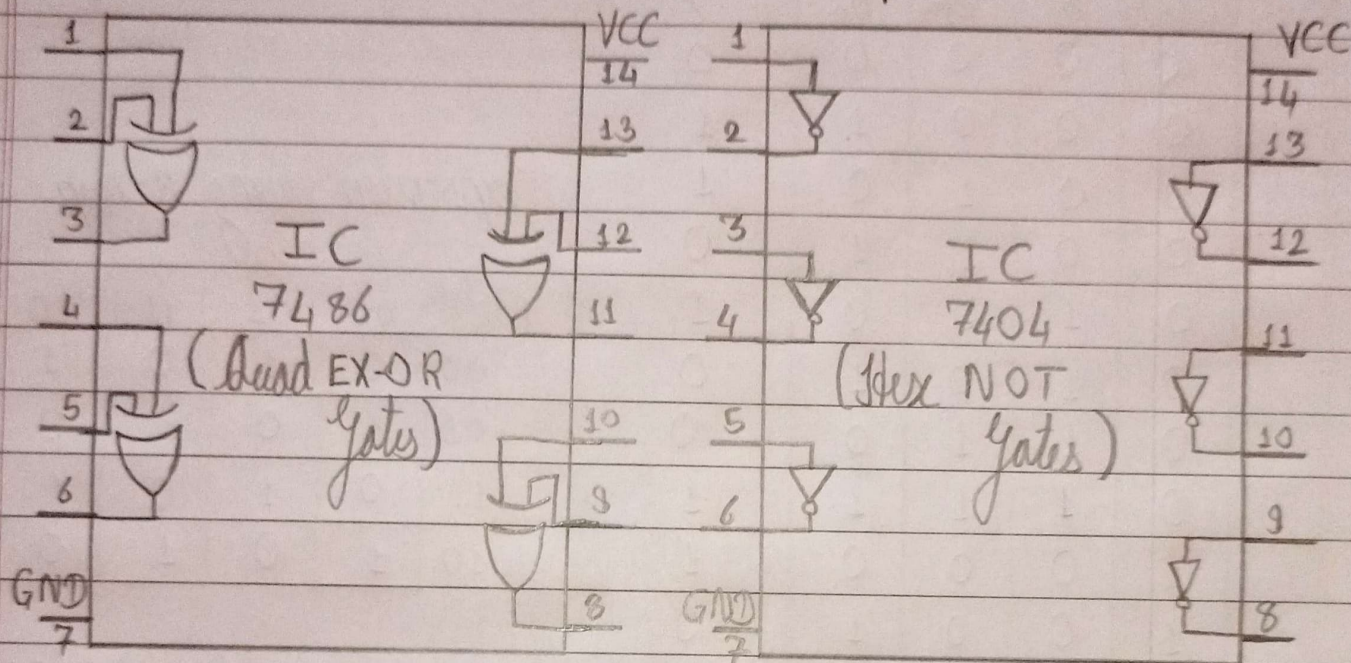 1
2
3
4
5
6
GND
7
IC
7486
(Quad EX-OR
gates)
VCC
14
13
12
11
10
9
8
1
2
3
4
5
6
GND
7
IC
7404
(Hex NOT
gates)
VCC
14
13
12
11
10
9
8